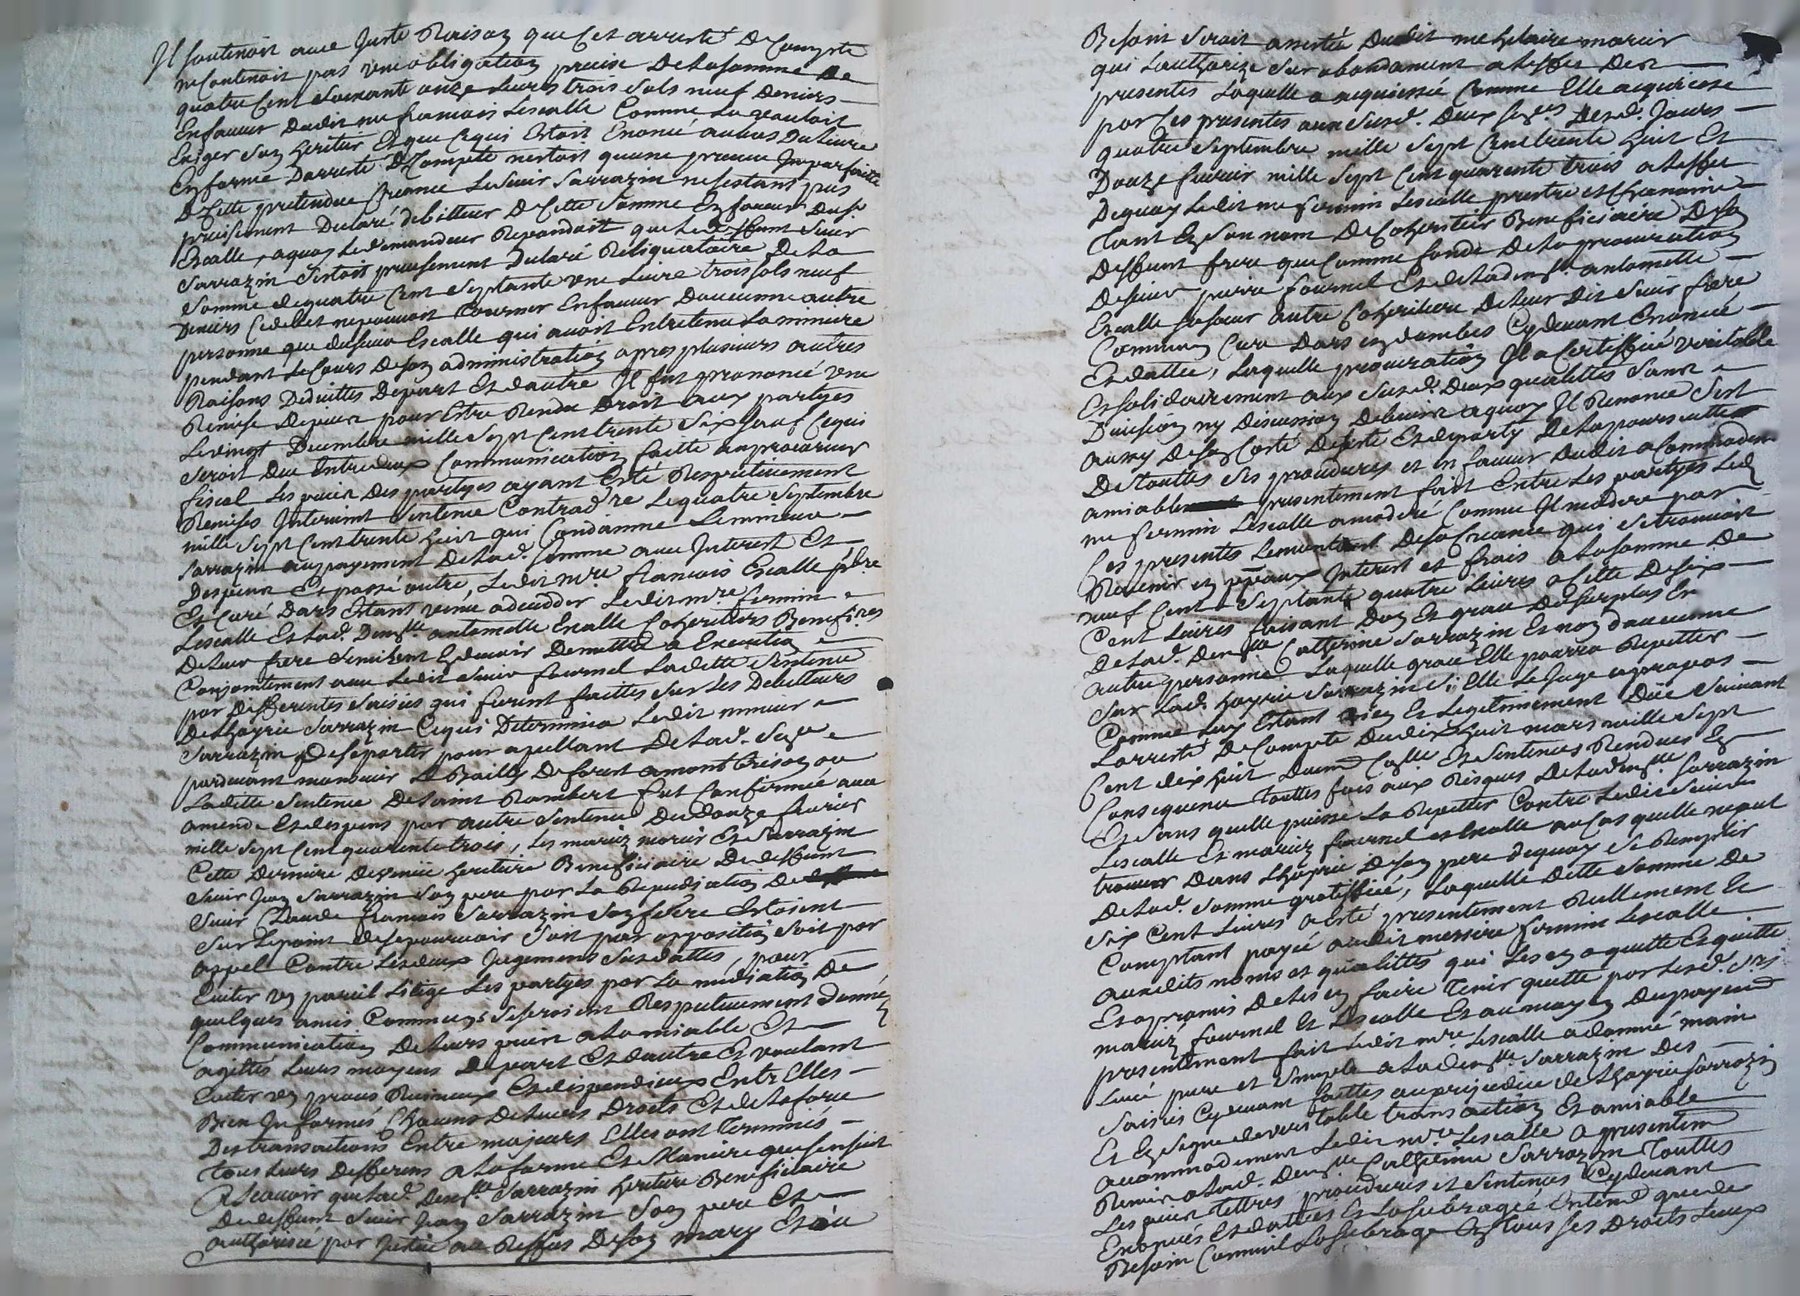 Il soutenoit avec Juste Raison que Cet arresté De Compte
ne Contenoit pas une obligation precise De La somme De
quatre Cent soixante onze Livres trois sols neuf Deniers
En faveur Dudit me francois Lescalle Comme La vouloit
Exiger son heritier Et que Ce qui Estoit Enoncé au bas Du Livre
En forme Darresté De Compte nestoit quune preuve Imparfaitte
De Cette pretendue Creance Le sieur Sarrazin ne sestant pas
precisement Declaré debitteur De Cette Somme En faveur Dudt
Escalle, a quoy Le demandeur Repondoit que Le deffunt sieur
Sarrazin sestoit precisement Declaré Reliquataire De La
somme de quatre Cent septante une Livre trois sols neuf
Deniers Ce debet ne pouvoit tourner En faveur Daucunne autre
personne que du sieur Escalle qui avoit Entretenu La mineure
pendant Le Cours De son administration apres plusieurs autres
Raisons Deduittes De part Et dautre Il fut prononcé une
Remise De pieces pour Estre Rendu Droit aux partyes
Le vingt Decembre mille Sept Cent trente Six sauf Ce qui
seroit Deu Entre deux Communication faitte au procureur
fiscal Les pieces Des partyes ayant Esté Respectivement
Remises Intervint Sentence Contradre Le quatre Septembre
mille Sept Cent trente huit qui Condamne Le mineur
Sarrazin au payement De Lad. somme avec Interest Et
Depens Et passé outre, Ledit mre francois Escalle frere
Et Curé Dars Estant venu a deceder Ledit mre firmin
Lescalle Et Lad. Demlle antoinette Escalle Coheritiers Benefres
De Leur frere Se mirent En devoir De mettre a Execution
Conjointement avec Ledit sieur fournel Laditte Sentence
par Differentes Saisies qui furent faittes Sur Les Debitteurs
De Lhoyrie Sarrazin Ce qui Determina Ledit mineur
Sarrazin De se porter pour apellant De Lad. Sentce
pardevant monsieur Le Bailly De forest a montbrison ou
Laditte Sentence De Saint Rambert fut Confirmée avec
amende Et depens par autre Sentence Du douze fevrier
mille Sept Cent quarente trois, Les mariez morier Et Sarrazin
Cette Derniere Devenue heritiere Beneficiaire De deffunt
Sieur Jean Sarrazin Son pere par La Repudiation De
Sieur Claude francois Sarrazin Son frere Estoient
Sur Le point De se pourvoir Soit par opposition Soit par
appel Contre Les deux Jugements Susdattés, pour
Eviter un pareil Litige Les partyes par La mediation De
quelques amis Communs Se seroient Respectivement donné
Communication De Leurs pieces a Lamiable Et
agittés Leurs moyens De part Et dautre Et voulant
Eviter un proces Ruineux Et dispendieux Entre Elles
Bien Informés Chacuns De Leurs Droits Et de La force
Des transactions Entre majeurs Elles ont Terminés
tous Leurs Differens a La forme Et Maniere que Sensuit
A Scavoir que Lad. Demlle Sarrazin heritiere Beneficiaire
Du deffunt Sieur Jean Sarrazin Son pere Et
authorisée par Justice au Reffus De Son mary Et au
Besoin Seroit assistée Dudit me hilaire morier
qui Lauthorize Surabondament a Leffet Des
presentes Laquelle a acquiescé Comme Elle acquiesce
par Ces presentes aux Susd. Deux Sences Desd. Jours
quatre Septembre mille Sept Cent trente huit Et
Douze fevrier mille Sept Cent quarente trois a Leffet
De quoy Ledit me firmin Lescalle prestre et Chanoine
tant En Son nom De Coheritier Beneficiaire De Son
Deffunt frere que Comme fondé De La procuration
De Sieur pierre fournel Et de La demlle antoinette
Escalle Sa Soeur autre Coheritiere De Leur Dit Sieur frere
Commun Curé Dars En dombes Cy devant Enoncée
Et dattée, Laquelle procuration Il a Certiffiée veritable
Et solidairement aux Susd. Deux qualittés Sans
Division ny Discussion De biens a quoy Il Renonce Sest
aussy De Son Costé Desisté Et departy De La poursuitte
De touttes Ses procedures et En faveur Dudit acCommodemt
amiable presentement fait Entre Les partyes Led.
me firmin Lescalle a moderé Comme Il modere par
Ces presentes Le montant De Sa Creance qui Se trouvoit
Revenir en ppaux Interest et frais a La Somme De
neuf Cent Septante quatre Livres a Celle De Six
Cent Livres faisant Don Et grace Du Surplus En
De Lad. Demlle Catherine Sarrazin Et non daucunne
autre personne Laquelle grace Elle pourra Repetter
Sur Lad. hoyrie Sarrazin Si Elle Le Juge a propos
Comme Luy Estant Bien Et Legitimement Düe Suivant
Larresté De Compte Du dix huit mars mille Sept
Cent dix huit Et Sentences Rendues En
Consequence touttes fois aux Risques De La demlle Sarrazin
Et Sans quelle puisse La Repetter Contre Ledit Sieur
Lescalle Et mariez fournel et Escalle au Cas quelle ne put
trouver Dans Lhoyrie De Son pere De quoy Se Remplir
De Lad. Somme gratiffiée, Laquelle Ditte Somme De
Six Cent Livres a Esté presentement Reellement Et
Comptant payée audit messire firmin Lescalle
auxdits noms et qualittés qui Les En a quitté Et quitte
Et a promis De Les En faire Tenir quitte par Lesd. Srs
mariez fournel Et Lescalle Et au moyen Du payemt
presentement fait Ledit mre Lescalle a donné main
Levée pure et Simple a La demlle Sarrazin Des
Saisies Cy devant faittes au prejudice de Lhoyrie Sarrazin
Et En Signe de veritable transaction Et amiable
accommodement Ledit mre Lescalle a presentemt
Remis a Lad. Demlle Catherine Sarrazin Touttes
Les pieces tittres procedures et Sentences Cy devant
Enoncés Et dattées Et La Subrogée Entemt que de
Besoin Comme Il La Subroge En tous Ses Droits Lieux